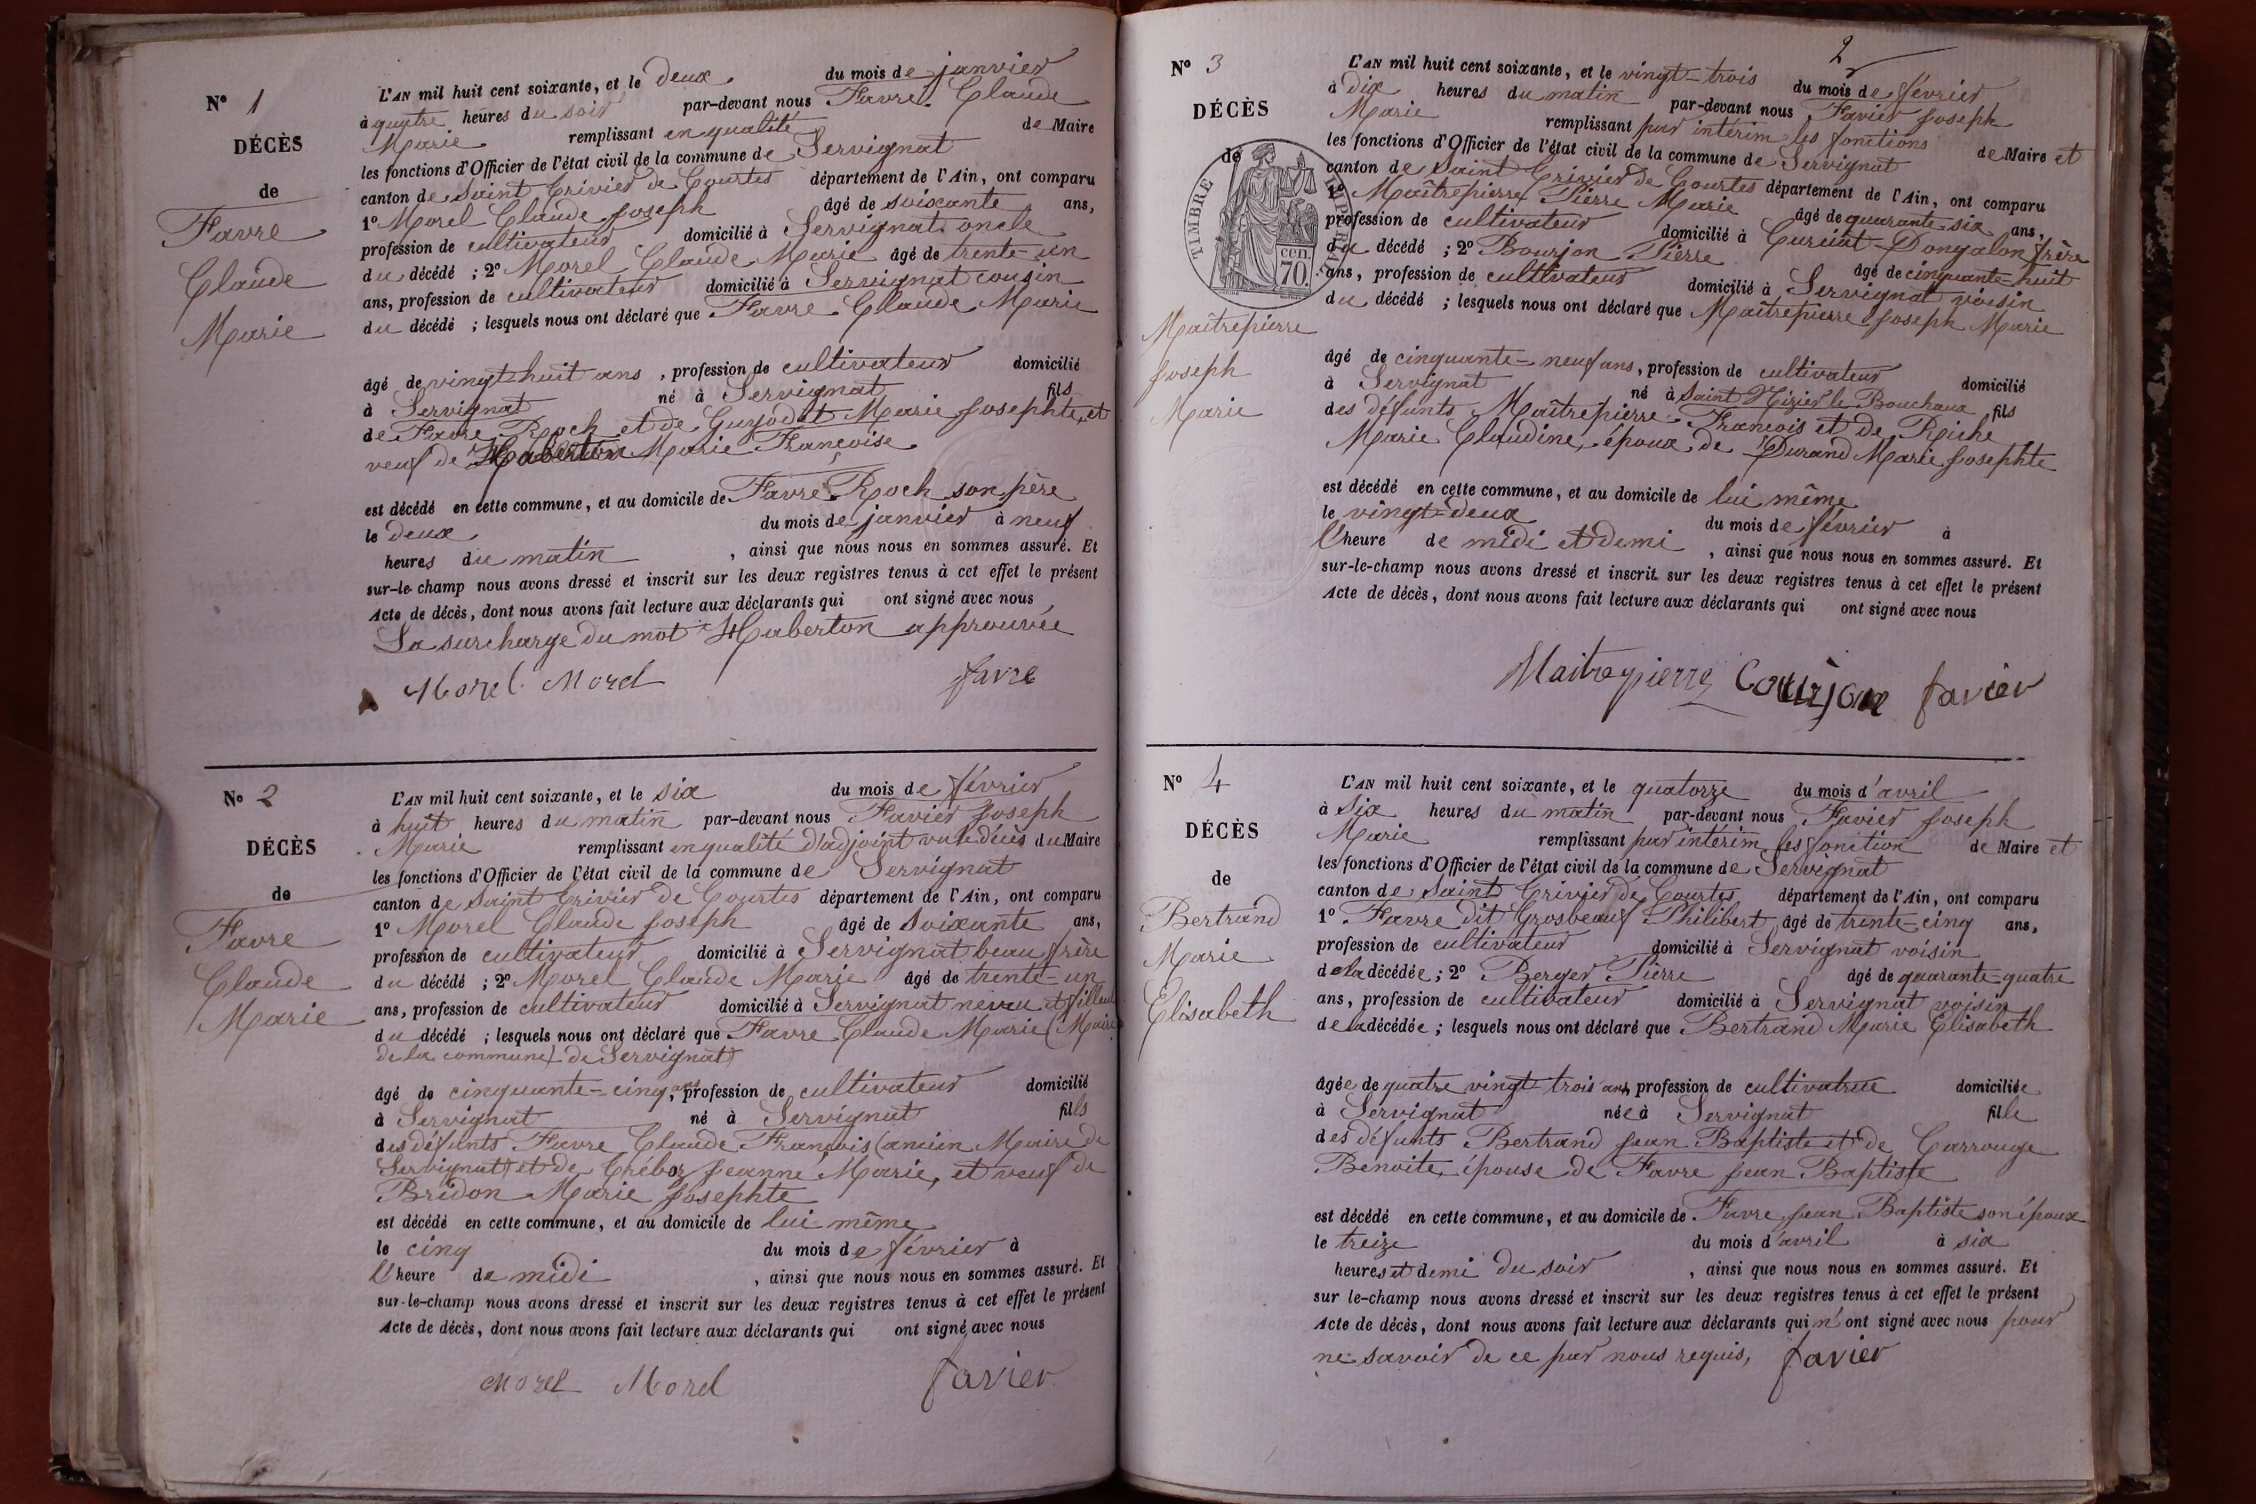 N° 1
DÉCÈS
de
Favre
Claude
Marie
L'AN mil huit cent soixante, et le deux du mois de janvier
à quatre heures du soir par-devant nous Favre Claude
Marie remplissant en qualité de Maire
les fonctions d'Officier de l'état civil de la commune de Servignat
canton de Saint Trivier de Courtes département de l'Ain, ont comparu
1° Morel Claude Joseph âgé de soixante ans,
profession de cultivateur domicilié à Servignat oncle
du décédé ; 2° Morel Claude Marie âgé de trente-un
ans, profession de cultivateur domicilié à Servignat cousin
du décédé ; lesquels nous ont déclaré que Favre Claude Marie
âgé de vingt-huit ans, profession de cultivateur domicilié
à Servignat né à Servignat fils
de Favre Roch et de Guyodat Marie Josephte, et
veuf de Haberton Marie Françoise
est décédé en cette commune, et au domicile de Favre Roch son père
le deux du mois de janvier à neuf
heures du matin, ainsi que nous nous en sommes assuré. Et
sur-le-champ nous avons dressé et inscrit sur les deux registres tenus à cet effet le présent
Acte de décès, dont nous avons fait lecture aux déclarants qui ont signé avec nous
La surcharge du mot Haberton approuvée
Morel Morel favre
N° 2
DÉCÈS
de
Favre
Claude
Marie
L'AN mil huit cent soixante, et le six du mois de février
à huit heures du matin par-devant nous Favier Joseph
Marie remplissant en qualité d'adjoint vu le décès du Maire
les fonctions d'Officier de l'état civil de la commune de Servignat
canton de Saint Trivier de Courtes département de l'Ain, ont comparu
1° Morel Claude Joseph âgé de soixante ans,
profession de cultivateur domicilié à Servignat beau frère
du décédé ; 2° Morel Claude Marie âgé de trente-un
ans, profession de cultivateur domicilié à Servignat neveu et filleul
du décédé ; lesquels nous ont déclaré que Favre Claude Marie (Maire
de la commune de Servignat)
âgé de cinquante-cinq ans, profession de cultivateur domicilié
à Servignat né à Servignat fils
des défunts Favre Claude François (ancien Maire de
Servignat) et de Chébos Jeanne Marie, et veuf de
Bridon Marie Josephte
est décédé en cette commune, et au domicile de lui même
le cinq du mois de février à
l'heure de midi, ainsi que nous nous en sommes assuré. Et
sur-le-champ nous avons dressé et inscrit sur les deux registres tenus à cet effet le présent
Acte de décès, dont nous avons fait lecture aux déclarants qui ont signé avec nous
Morel Morel favier
2
N° 3
DÉCÈS
de
TIMBRE IMPÉRIAL
CEN.
70.
Maîtrepierre
Joseph
Marie
L'AN mil huit cent soixante, et le vingt-trois du mois de février
à dix heures du matin par-devant nous Favier Joseph
Marie remplissant par intérim les fonctions de Maire et
les fonctions d'Officier de l'état civil de la commune de Servignat
canton de Saint Trivier de Courtes département de l'Ain, ont comparu
1° Maîtrepierre Pierre Marie âgé de quarante-six ans,
profession de cultivateur domicilié à Curciat-Dongalon frère
du décédé ; 2° Bourjon Pierre âgé de cinquante-huit
ans, profession de cultivateur domicilié à Servignat voisin
du décédé ; lesquels nous ont déclaré que Maîtrepierre Joseph Marie
âgé de cinquante-neuf ans, profession de cultivateur domicilié
à Servignat né à Saint Nizier le Bouchoux fils
des défunts Maîtrepierre François et de Riche
Marie Claudine, époux de Durand Marie Josephte
est décédé en cette commune, et au domicile de lui même
le vingt-deux du mois de février à
l'heure de midi et demi, ainsi que nous nous en sommes assuré. Et
sur-le-champ nous avons dressé et inscrit sur les deux registres tenus à cet effet le présent
Acte de décès, dont nous avons fait lecture aux déclarants qui ont signé avec nous
Maitrepierre Courjon favier
N° 4
DÉCÈS
de
Bertrand
Marie
Elisabeth
L'AN mil huit cent soixante, et le quatorze du mois d'avril
à six heures du matin par-devant nous Favier Joseph
Marie remplissant par intérim les fonction de Maire et
les fonctions d'Officier de l'état civil de la commune de Servignat
canton de Saint Trivier de Courtes département de l'Ain, ont comparu
1° Favre dit Grosbeauf Philibert âgé de trente-cinq ans,
profession de cultivateur domicilié à Servignat voisin
de la décédée ; 2° Berger Pierre âgé de quarante-quatre
ans, profession de cultivateur domicilié à Servignat voisin
de la décédée ; lesquels nous ont déclaré que Bertrand Marie Elisabeth
âgée de quatre vingt-trois ans, profession de cultivatrice domiciliée
à Servignat née à Servignat fille
des défunts Bertrand Jean Baptiste et de Carrouge
Benoite, épouse de Favre Jean Baptiste
est décédé en cette commune, et au domicile de Favre Jean Baptiste son époux
le treize du mois d'avril à six
heures et demi du soir, ainsi que nous nous en sommes assuré. Et
sur le-champ nous avons dressé et inscrit sur les deux registres tenus à cet effet le présent
Acte de décès, dont nous avons fait lecture aux déclarants qui n'ont signé avec nous pour
ne savoir de ce par nous requis, favier